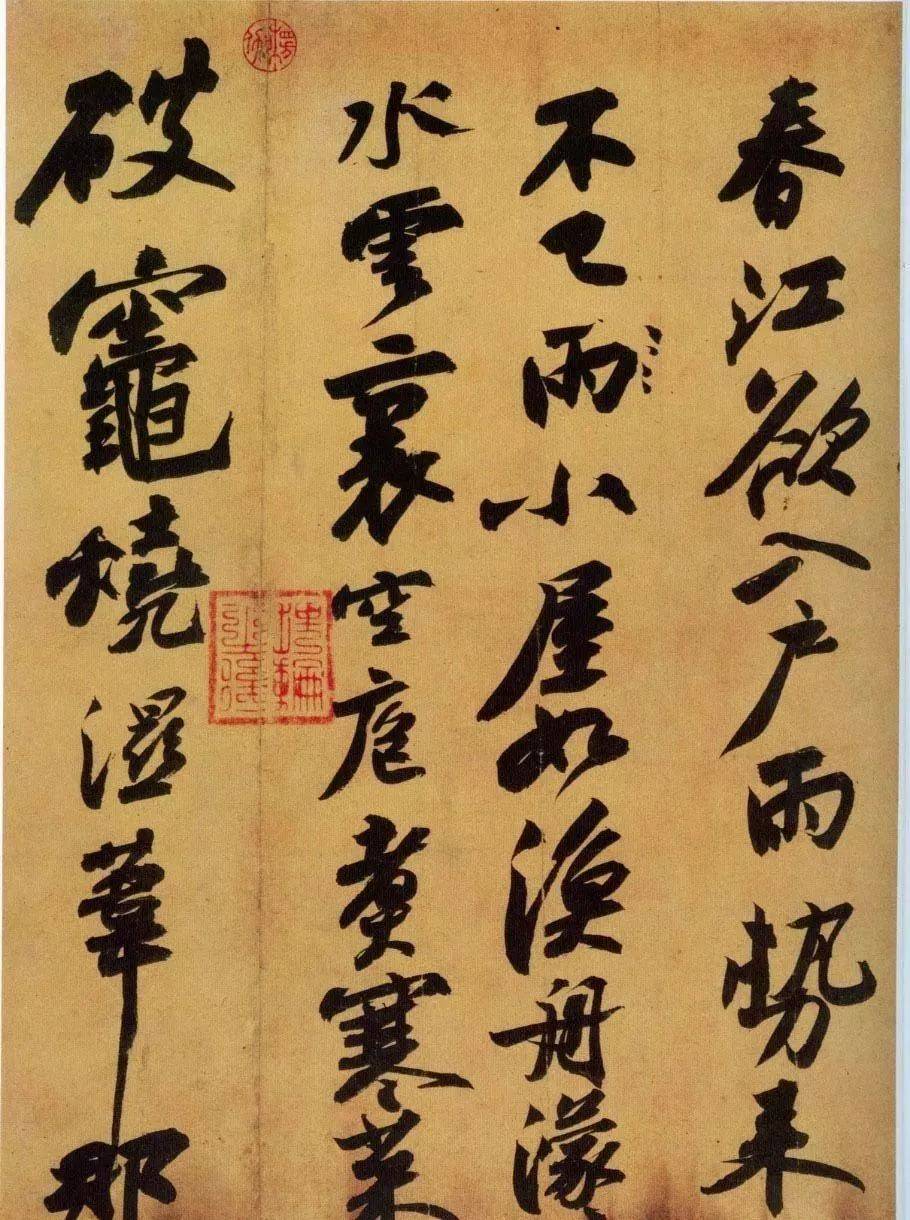 春江欲入户雨势来
不已雨小屋如渔舟濛
水雲裏空庖煑寒菜
破竈燒濕葦那